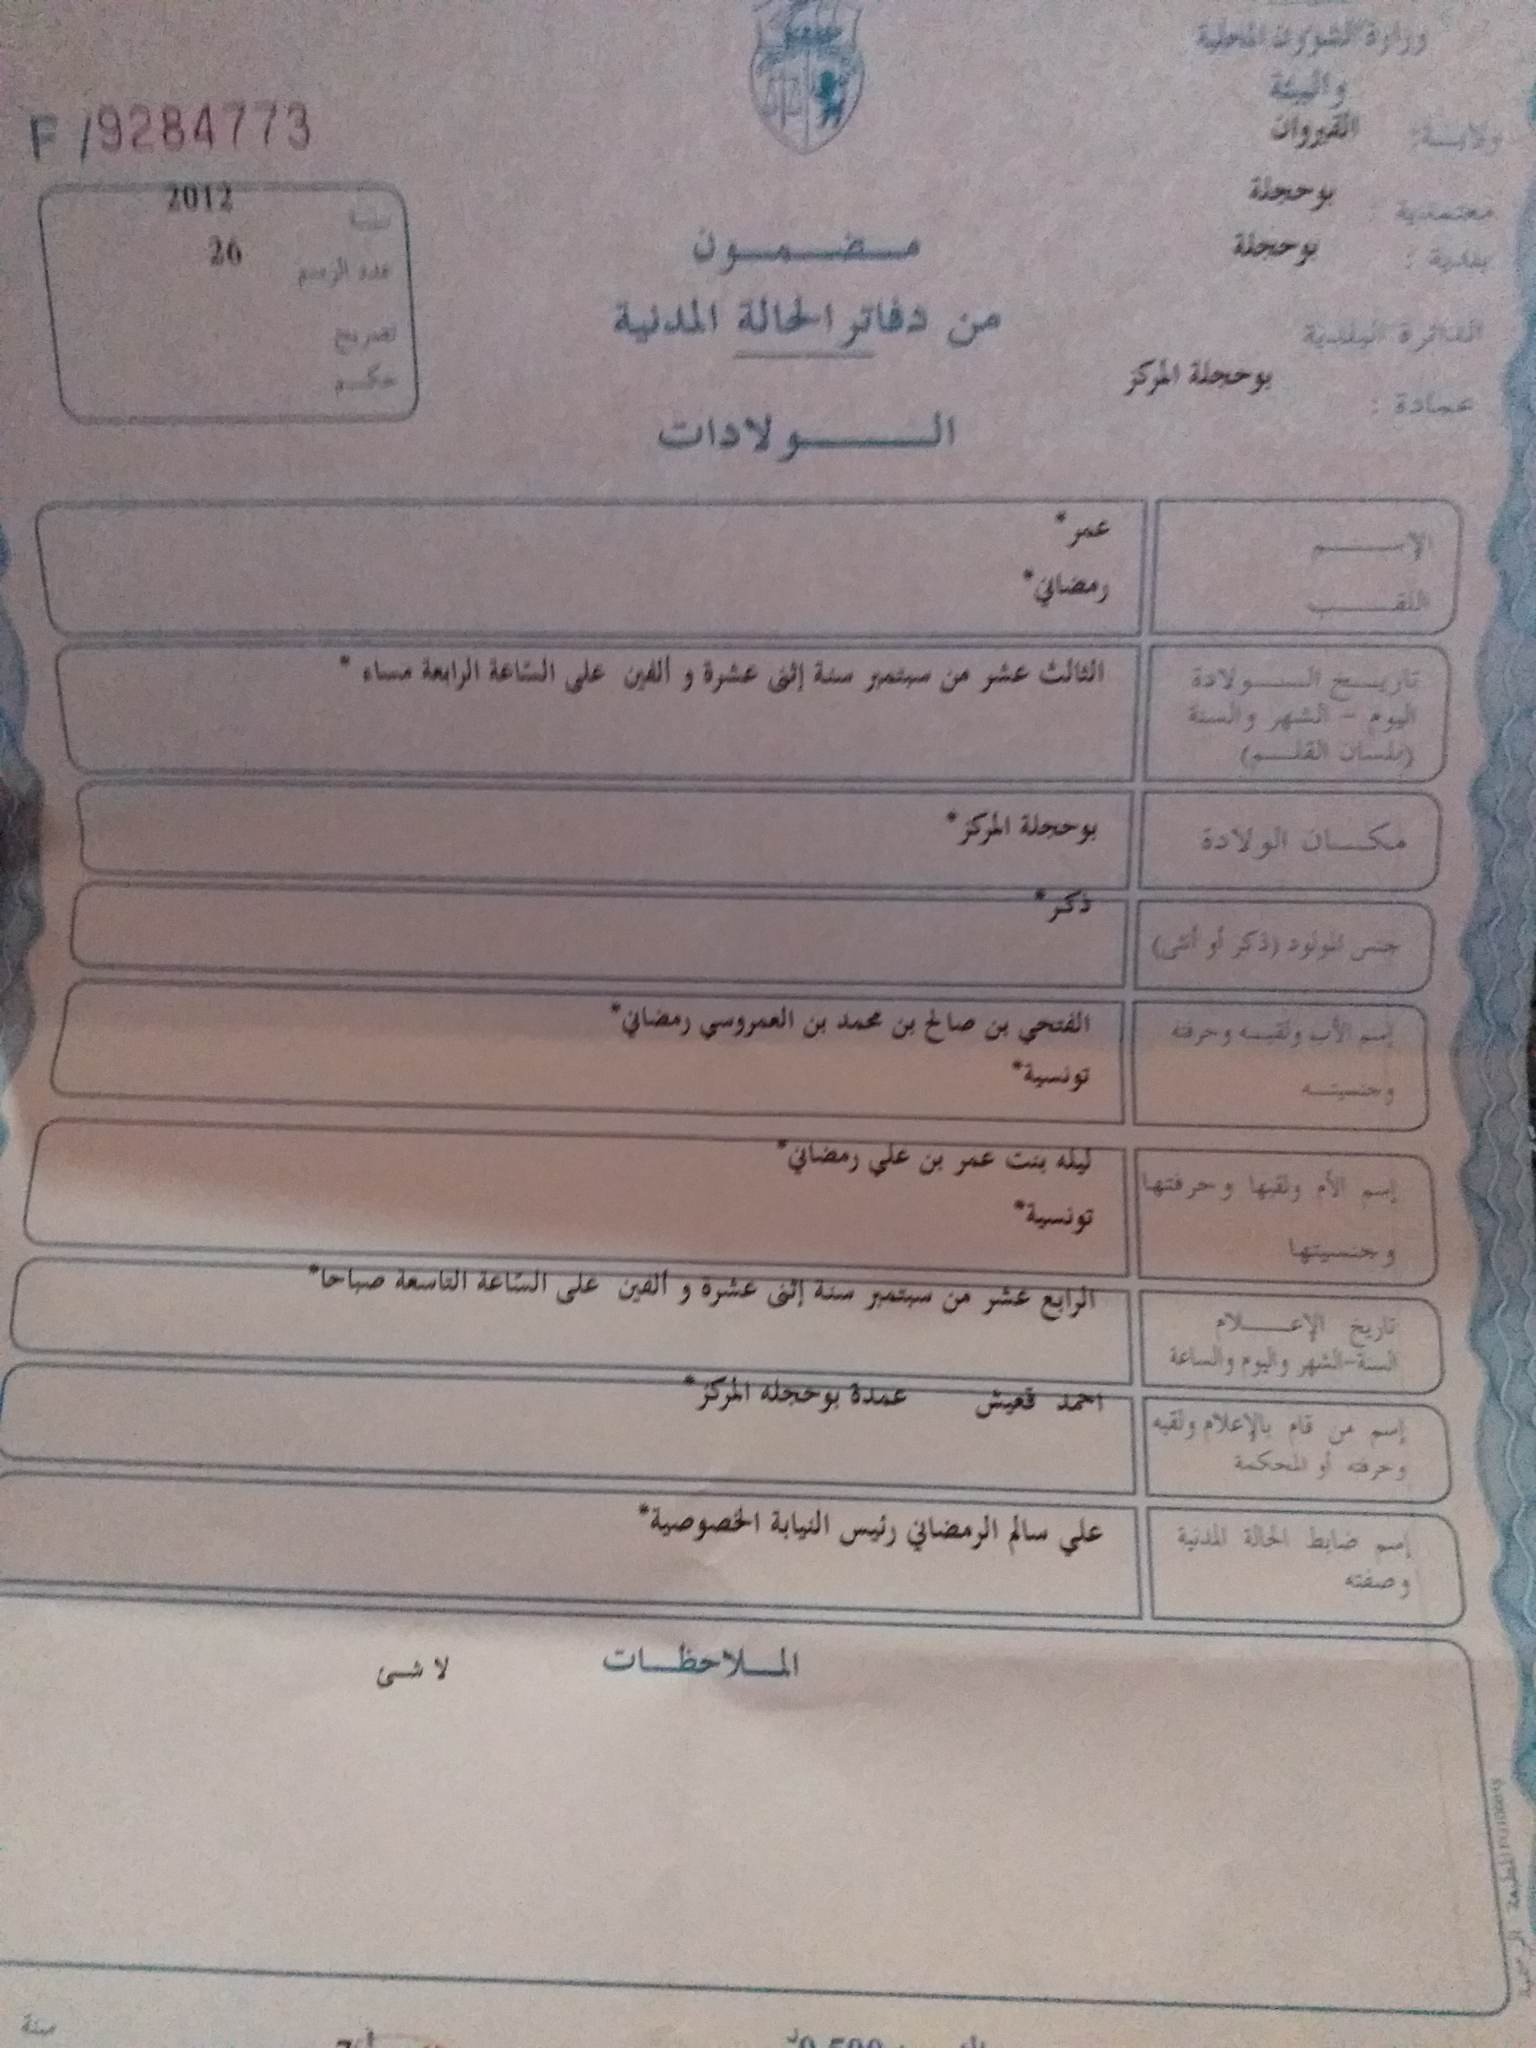 وزارة الشؤون المحلية
والبيئة
ولايـــة: القيروان
معتمدية : بوحجلة
بلدية : بوحجلة
الدائرة البلدية
عمادة : بوحجلة المركز
F /9284773
سنة 2012
عدد الرسم 26
تصريح
حكـــم
مـــضـــمـــون
من دفاتر الحالة المدنية
الـــــــولادات
الإســـــم عمر*
اللقـــــب رمضاني*
تاريـــخ الـــــولادة الثالث عشر من سبتمبر سنة إثنى عشرة و ألفين على السّاعة الرابعة مساء *
اليوم - الشهر والسنة
(بلسان القلـــم)
مكـــان الولادة بوحجلة المركز*
جنس المولود (ذكر أو أنثى) ذكر*
إسم الأب ولقبـه وحرفته الفتحي بن صالح بن محمد بن العمروسي رمضاني*
وجنسيتـــه تونسية*
إسم الأم ولقبها وحرفتها ليله بنت عمر بن علي رمضاني*
وجنسيتها تونسية*
تاريخ الإعـــــلام الرابع عشر من سبتمبر سنة إثنى عشرة و ألفين على السّاعة التاسعة صباحا*
السنة-الشهر واليوم والساعة
إسم من قام بالإعلام ولقبه احمد قعيش عمدة بوحجله المركز*
وحرفته أو المحكمة
إسم ضابط الحالة المدنية علي سالم الرمضاني رئيس النيابة الخصوصية*
وصفته
المـــلاحظـــات لا شـــئ
المطبعة الرسمية
سنة